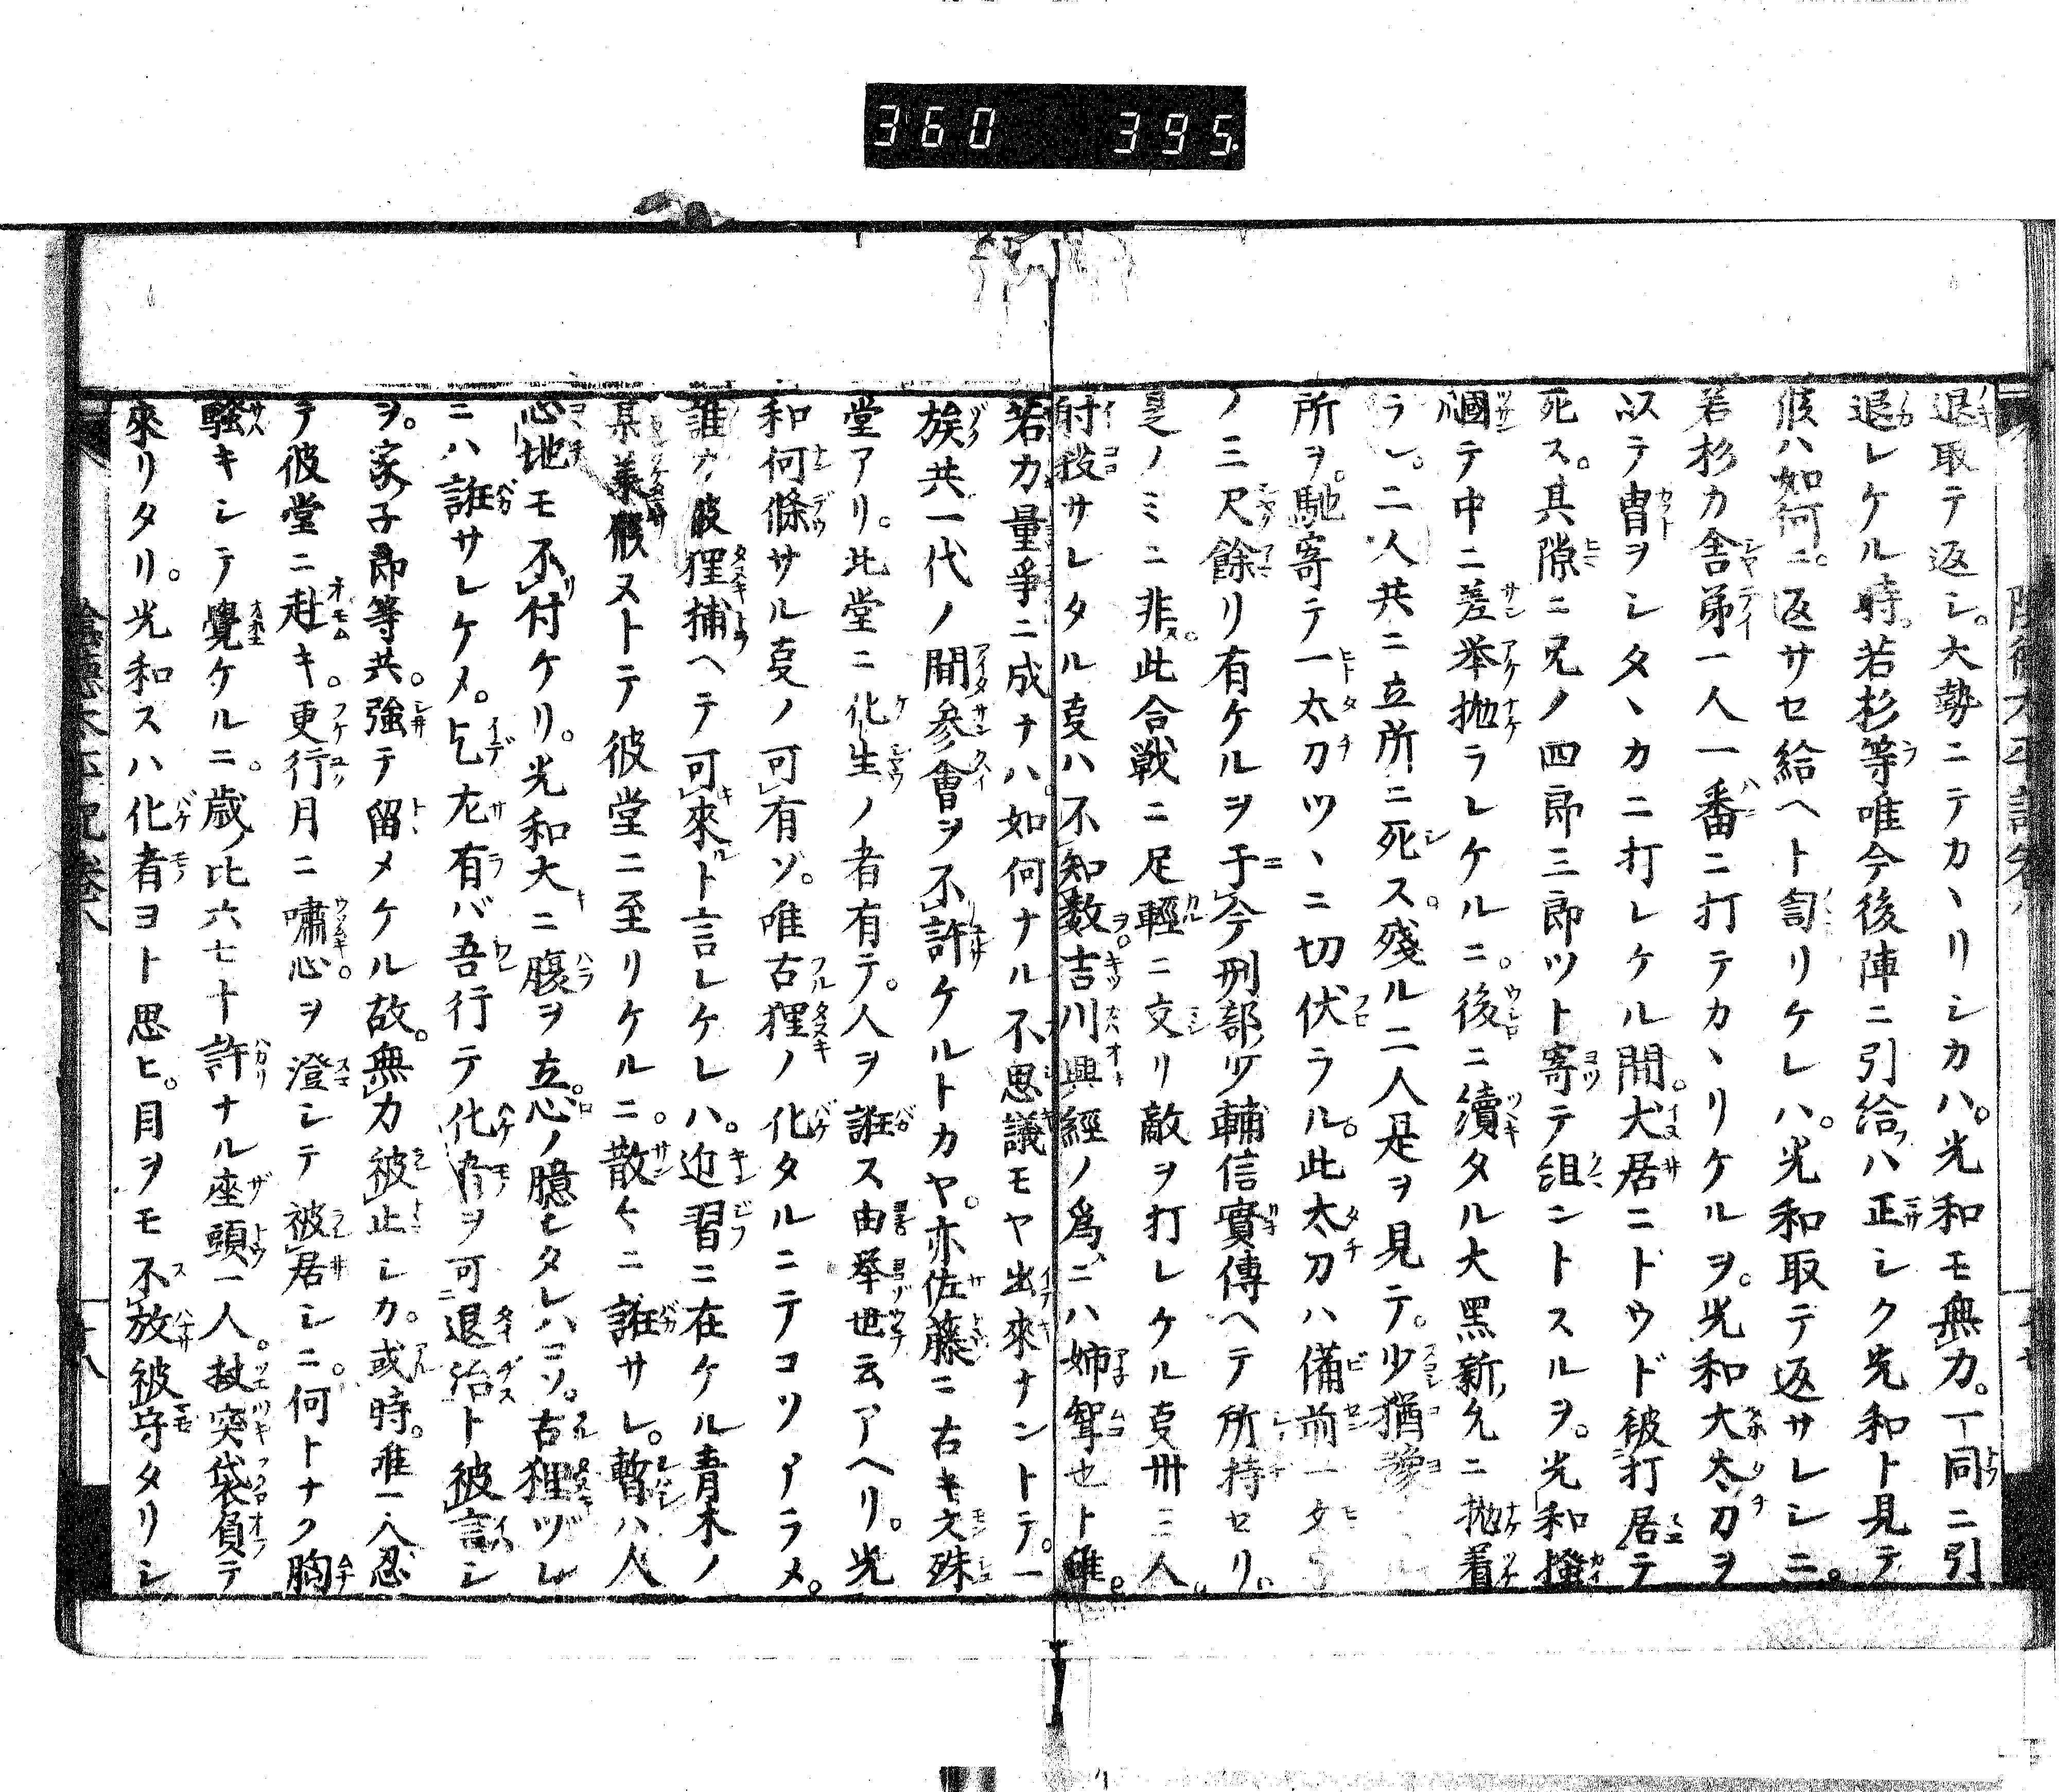 360 395
退取テ返シ。大勢ニテカヽリシカハ。光和モ無力。一同ニ引
退レケル時。若杉等唯今後陣ニ引給ハ正シク光和ト見テ
候ハ如何ニ。返サセ給ヘト訇リケレハ。光和取テ返サレシニ。
若杉カ舎弟一人一番ニ打テカヽリケルヲ。光和大太刀ヲ
以テ冑ヲシタヽカニ打レケル間。犬居ニドウド被打居テ
死ス。其隙ニ兄ノ四郎三郎ツト寄テ組ントスルヲ。光和掻
テ中ニ差挙抛ラレケルニ。後ニ續タル大黒新允ニ抛着
ラレ。二人共ニ立所ニ死ス。殘ル二人是ヲ見テ。少猶豫
所ヲ。馳寄テ一太刀ツヽニ切伏ラル。此太刀ハ備前一
ノ三尺餘リ有ケルヲ于今刑部少輔信實傳ヘテ所持セリ。
是ノミニ非ス。此合戦ニ足輕ニ交リ敵ヲ打レケル叓卅三人。
射殺サレタル叓ハ不知数ヲ。吉川興經ノ爲ニハ姉聟也ト雖。
若カ量爭ニ成ナハ。如何ナル不思議モヤ出來ナントテ。一
族共一代ノ間參會ヲ不許ケルトカヤ。亦佐藤ニ古キ文殊
堂アリ。此堂ニ化生ノ者有テ。人ヲ誑ス由挙世云アヘリ。光
和何條サル叓ノ可有ゾ。唯古狸ノ化タルニテコソアラメ。
誰カ彼狸捕ヘテ可來ト言レケレハ。近習ニ在ケル青木ノ
某業候ヌトテ彼堂ニ至リケルニ。散々ニ誑サレ。暫ハ人
心地モ不付ケリ。光和大ニ腹ヲ立。心ノ臆シタレハコソ。古狸ヅレ
ニハ誑サレケメ。乞尤有バ吾行テ化者ヲ可退治ト被言シ
ヲ。家子郎等共。強テ留メケル故。無力被止シカ。或時。唯一人忍
テ彼堂ニ赴キ。更行月ニ嘯心ヲ澄シテ被居シニ。何トナク胸
騒キシテ覺ケルニ。歳ノ比六七十許ナル座頭一人。杖突袋負テ
來リタリ。光和スハ化者ヨト思ヒ。目ヲモ不放被守タリシ